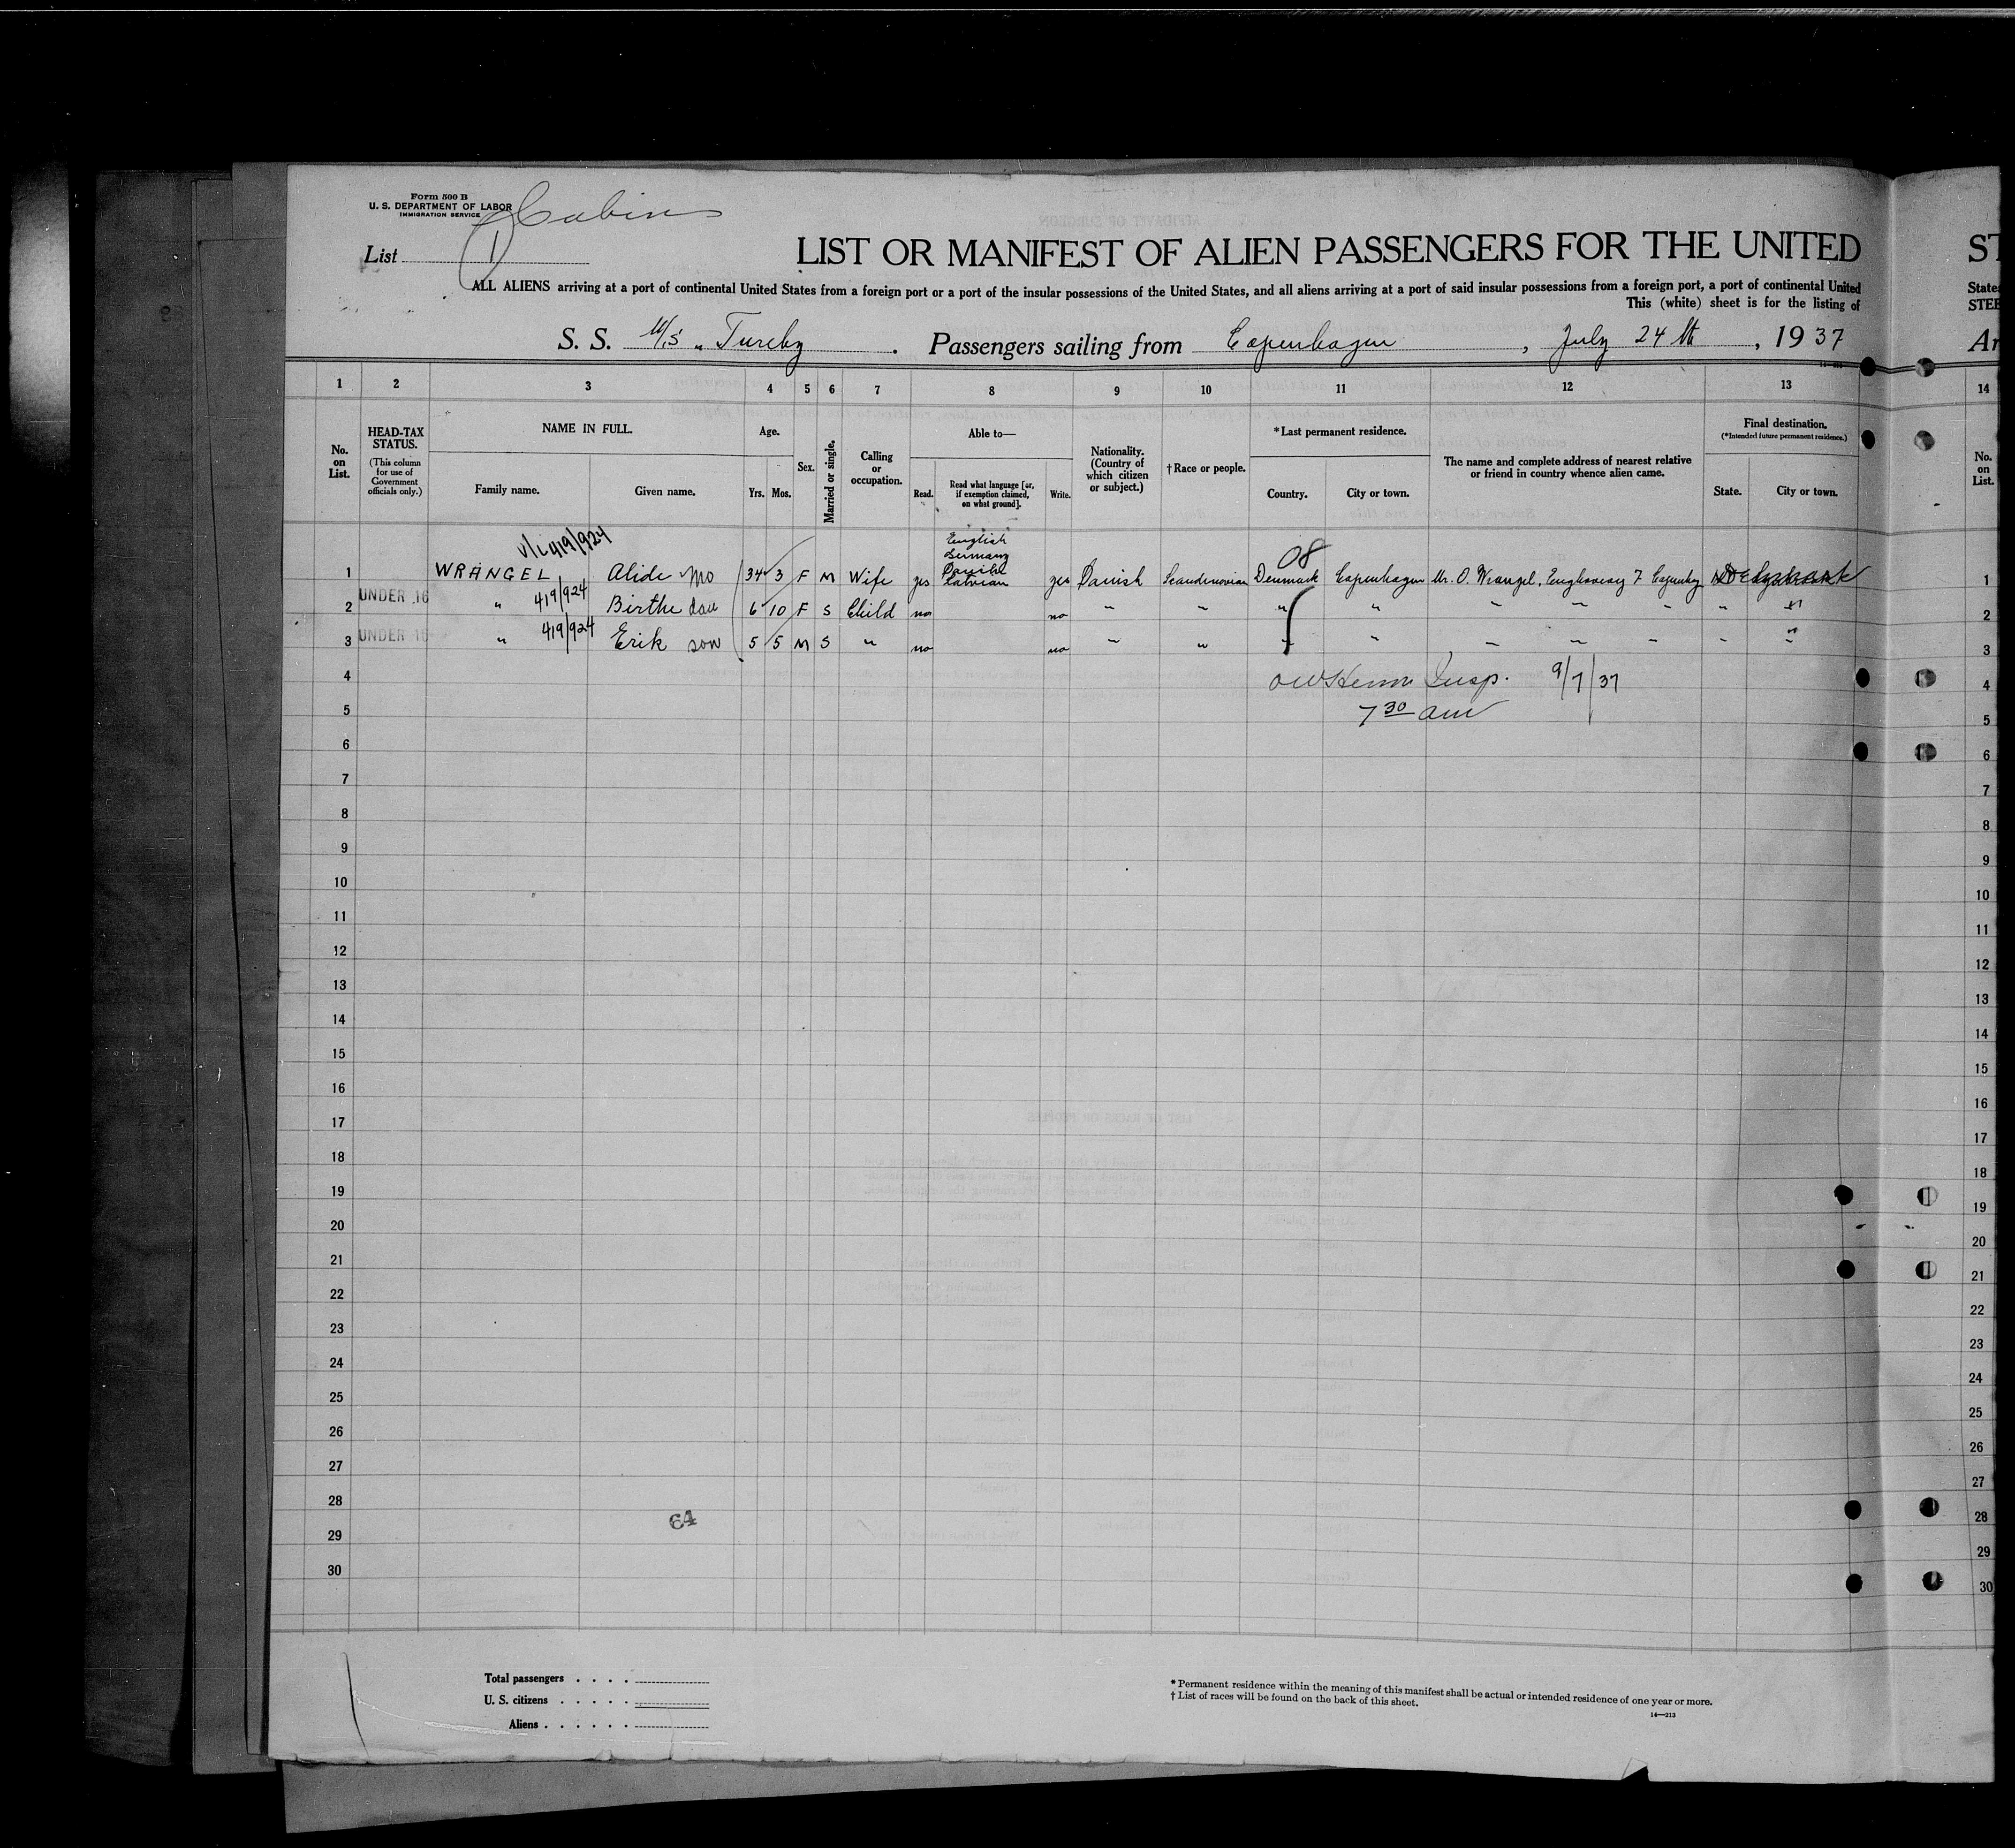 Form 500 B
U. S. DEPARTMENT OF LABOR
IMMIGRATION SERVICE
Cabin
List 1
LIST OR MANIFEST OF ALIEN PASSENGERS FOR THE UNITED
ST
ALL ALIENS arriving at a port of continental United States from a foreign port or a port of the insular possessions of the United States, and all aliens arriving at a port of said insular possessions from a foreign port, a port of continental United
State
This (white) sheet is for the listing of
STEE
S. S. M/S „ Tureby . Passengers sailing from Copenhagen , July 24th , 1937
Ar
1 2 3 4 5 6 7 8 9 10 11 12 13 14
No. on List.
HEAD-TAX STATUS.
(This column for use of Government officials only.)
NAME IN FULL.
Family name.
Given name.
Age.
Yrs. Mos.
Sex.
Married or single.
Calling or occupation.
Able to—
Read.
Read what language [or, if exemption claimed, on what ground].
Write.
Nationality. (Country of which citizen or subject.)
† Race or people.
*Last permanent residence.
Country.
City or town.
The name and complete address of nearest relative or friend in country whence alien came.
Final destination.
(*Intended future permanent residence.)
State.
City or town.
No. on List.
419/924
English
German
Danish
Latvian
08
1 WRANGEL Alide Mo 34 3 F M Wife yes yes Danish Scandinavian Denmark Copenhagen Mr. O. Wrangel, Enghavevej 7 1
UNDER 16
2 " 419/924 Birthe dau 6 10 F S Child no no " " " " " " " " " 2
UNDER 16
3 " 419/924 Erik son 5 5 M S " no no " " " " " " " " " 3
4 Insp. 9/7/37 4
5 7 30 am 5
6 6
7 7
8 8
9 9
10 10
11 11
12 12
13 13
14 14
15 15
16 16
17 17
18 18
19 19
20 20
21 21
22 22
23 23
24 24
25 25
26 26
27 27
28 28
64
29 29
30 30
Total passengers . . . .
U. S. citizens . . . . .
Aliens . . . . . .
* Permanent residence within the meaning of this manifest shall be actual or intended residence of one year or more.
† List of races will be found on the back of this sheet.
14—213